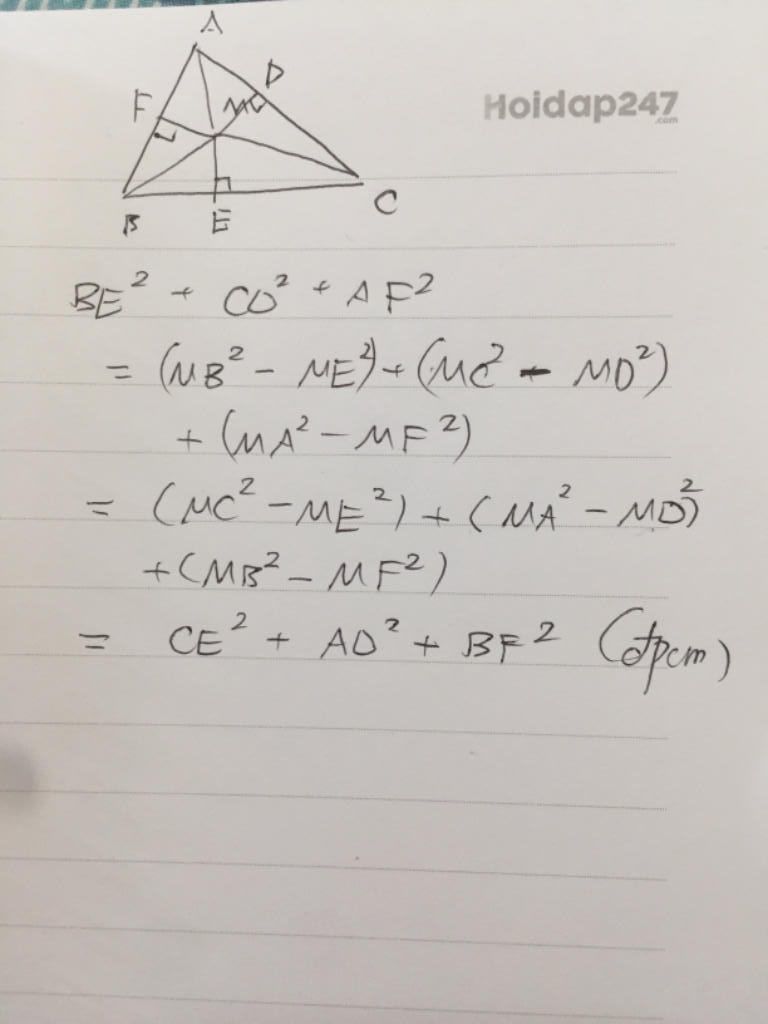 A
D
F
M
Hoidap247
.com
B
E
C
BE² + CD² + AF²
= (MB² - ME²) + (MC² - MD²)
+ (MA² - MF²)
= (MC² - ME²) + (MA² - MD²)
+ (MB² - MF²)
= CE² + AD² + BF² (đpcm)